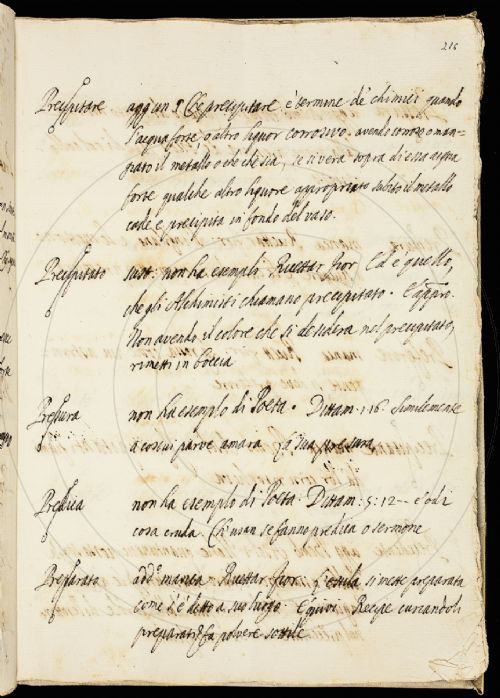 216
Precipitare agg un § Che precipitare è termine de' chimici quando
l'acqua forte o altro liquor corrosivo. avendo corroso o man-
giato il metallo o che che sia, se si versa sopra di esso acqua
forte qualche altro liquore appropriato subito il metallo
cade e precipita in fondo del vaso.
Precipitato sust: non ha esempli. Ricettar fior Ed è quello,
che gli Alchimisti chiamano precipitato. E appro.
Non avendo il colore che si desidera nel precipitato,
rimetti in boccia
Pressura non ha esempio di Poeta. Dittam: 1 16. Similemente
a costui parve amara la sua pressura
Predica non ha esempio di Poeta. Dittam: 5: 12 - e odi
cosa cruda. Ch'usan se fanno predica o sermone
Preparato add: manca Ricettar fior si mette preparata
come s'è detto a suo luogo. E quivi Recipe
preparati fa polvere sottile